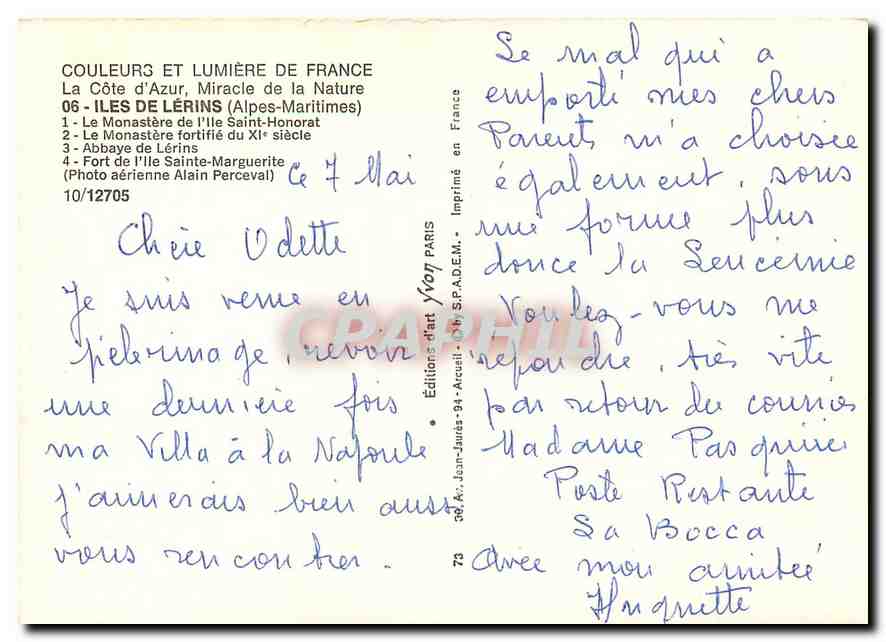 COULEURS ET LUMIÈRE DE FRANCE
La Côte d'Azur, Miracle de la Nature
06 - ILES DE LÉRINS (Alpes-Maritimes)
1 - Le Monastère de l'Ile Saint-Honorat
2 - Le Monastère fortifié du XIe siècle
3 - Abbaye de Lérins
4 - Fort de l'Ile Sainte-Marguerite
(Photo aérienne Alain Perceval)
10/12705
Ce 7 Mai
Chère Odette
Je suis venue en
pélerinage, revoir
une dernière fois
ma Villa à la Napoule
j'aimerais bien aussi
vous rencontrer.
73 • Éditions d'art Yvon PARIS
30, Av. Jean-Jaurès - 94 - Arcueil - © by S.P.A.D.E.M. - Imprimé en France
Le mal qui a
emporté mes chers
Parents m'a choisie
également, sous
une forme plus
douce la Leucémie
Voulez-vous me
répondre, très vite
par retour du courrier
Madame Pasquier
Poste Restante
La Bocca
Avec mon amitié
Huguette
CPAPHIL